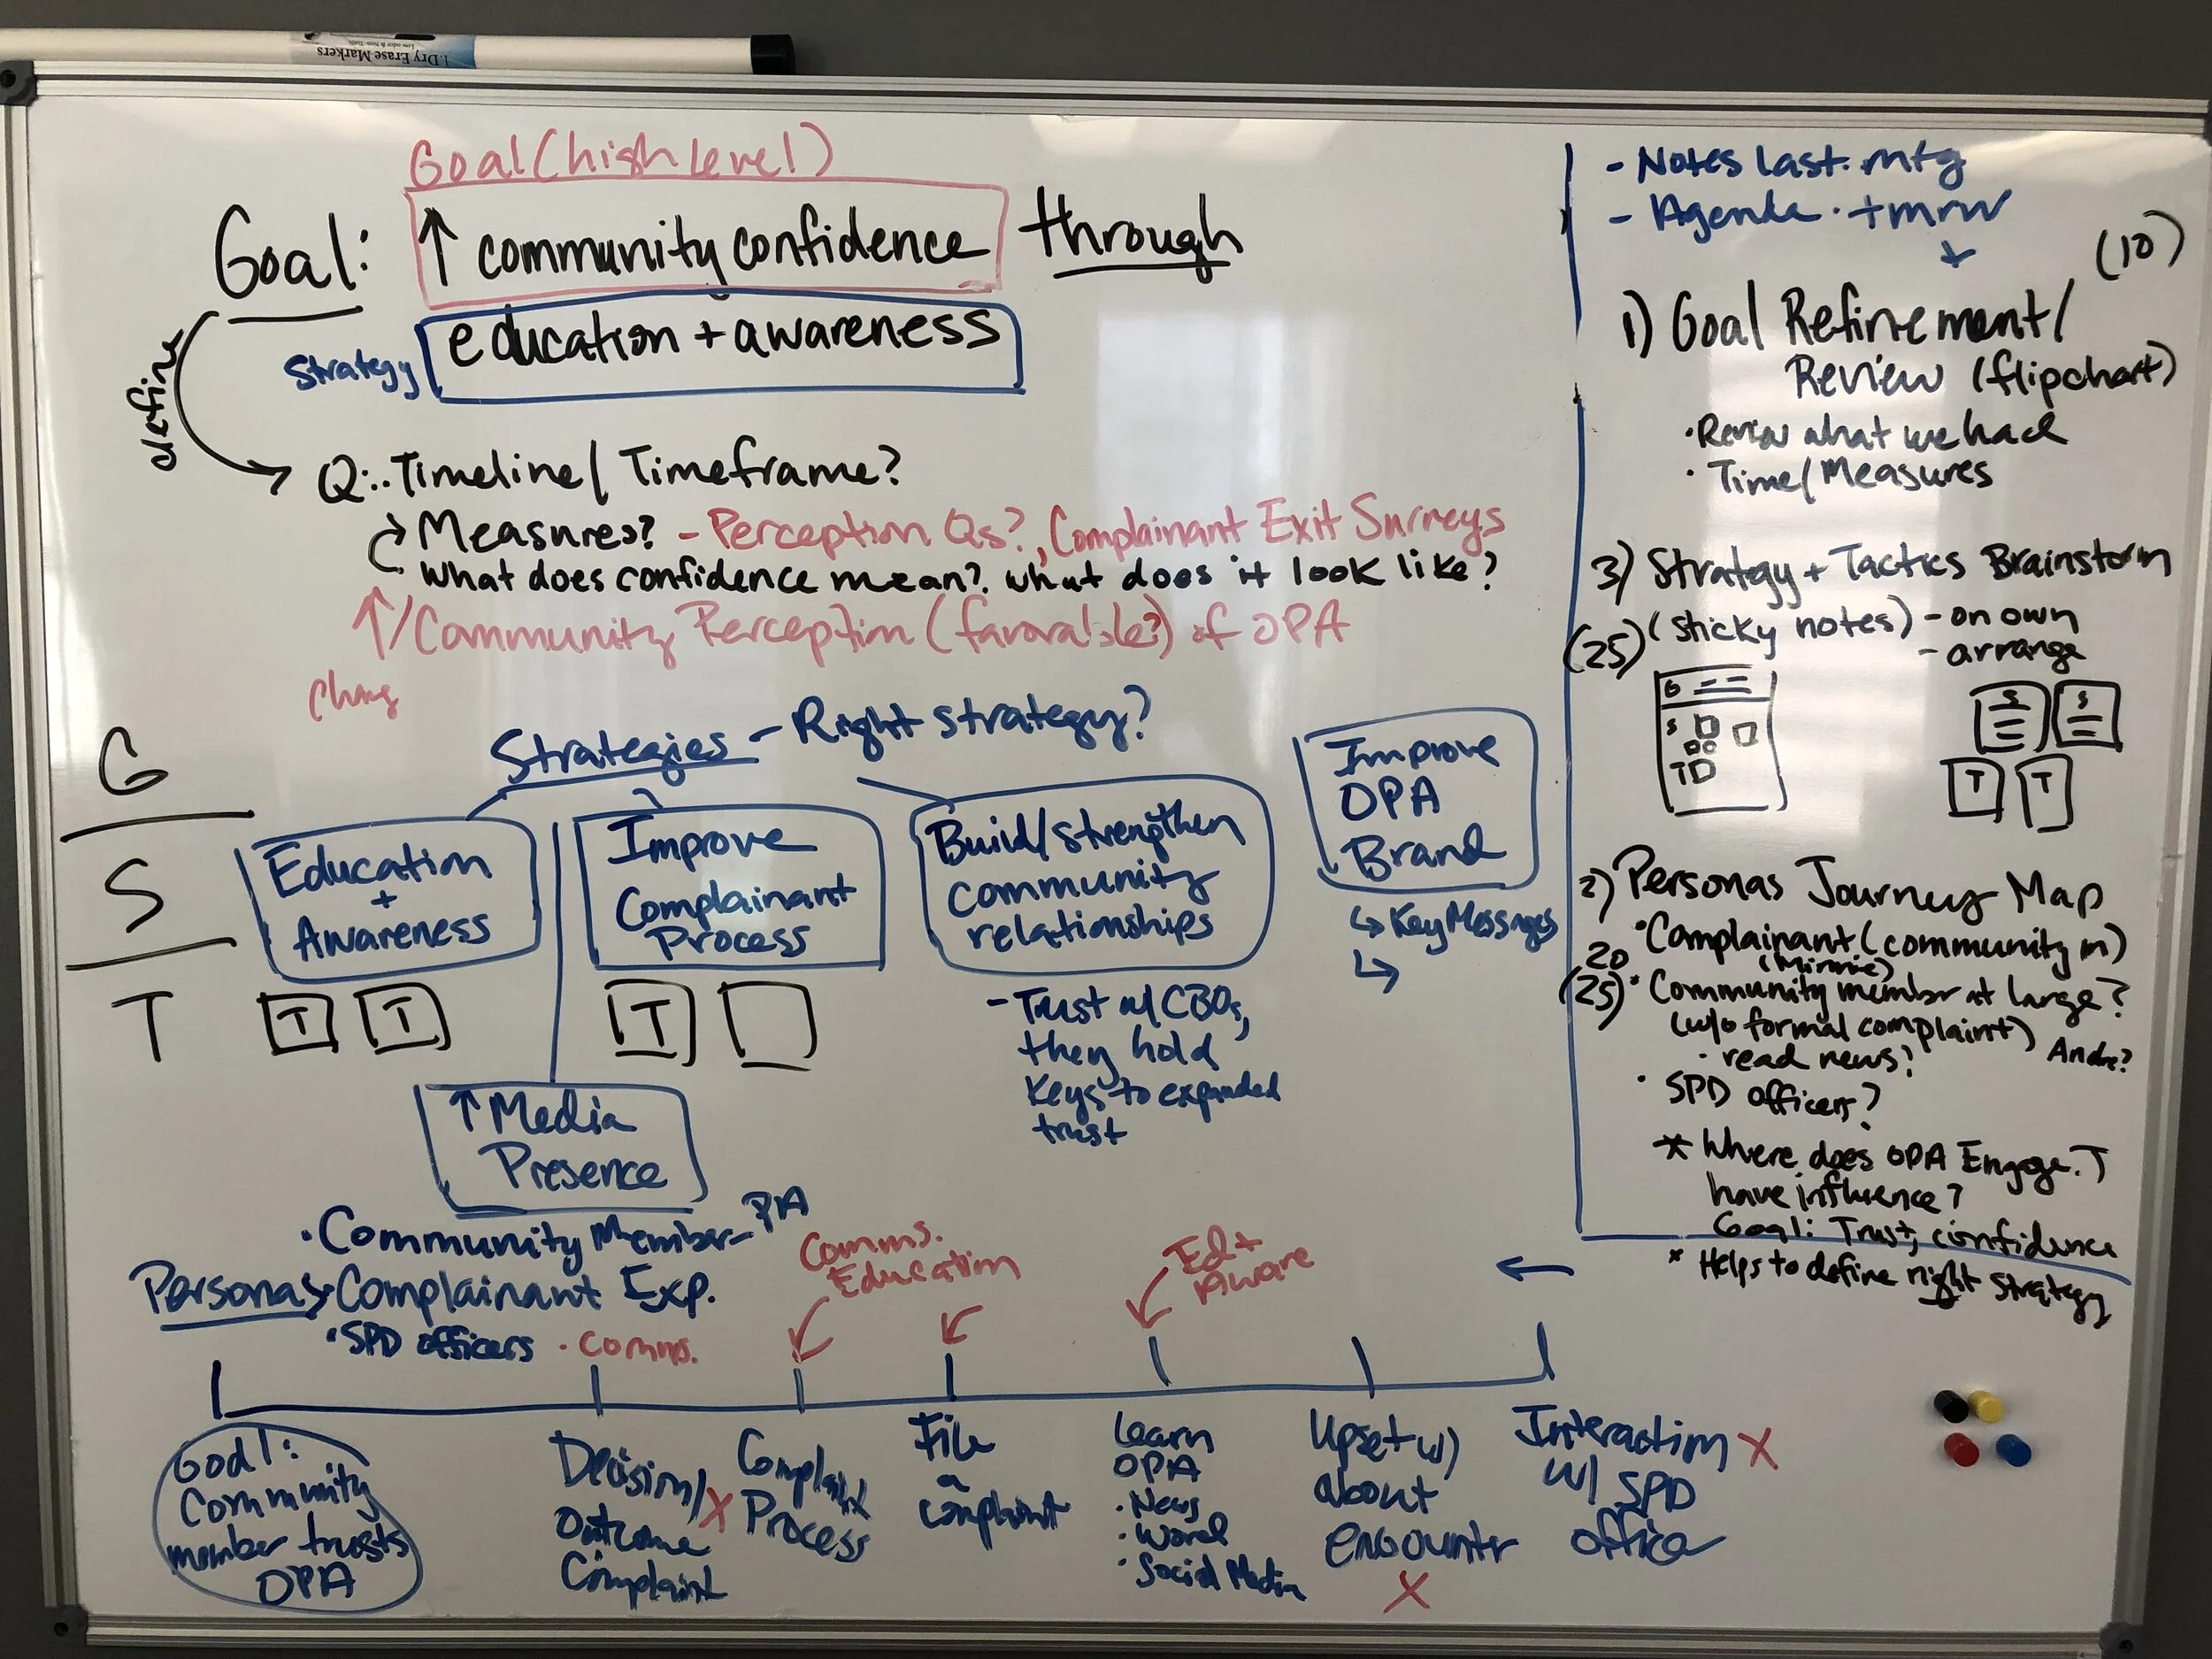 Dry Erase Markers
Goal (high level)
Goal: ↑ community confidence through
Strategy education + awareness
define
Q: Timeline/Timeframe?
Measures? - Perception Qs?, Complainant Exit Surveys
What does confidence mean? what does it look like?
↑/Community Perception (favorable?) of OPA
Chng
Strategies - Right strategy?
G
S
T
Education
+
Awareness
Improve
Complainant
Process
Build/strengthen
community
relationships
Improve
OPA
Brand
↳ Key Messages
↳
T T
T
- Trust w/ CBOs,
they hold
Keys to expanded
trust
↑ Media
Presence
Personas
· Community Member - PA
· Complainant Exp.
· SPD officers
· Comms.
Comms.
Education
Ed +
Aware
←
Goal:
Community
member trusts
OPA
Decision/
Outcome
Complaint
X
Complaint
Process
File
a
complaint
Learn
OPA
· News
· Word
· Social Media
Upset w/
about
encounter
X
Interaction X
w/ SPD
office
- Notes last mtg
- Agenda · tmrw
↓
(10)
1) Goal Refinement/
Review (flipchart)
· Review what we had
· Time/Measures
3) Strategy + Tactics Brainstorm
(25) (sticky notes) - on own
- arrange
G
S
T
S S
T T
2) Personas Journey Map
· Complainant (community m)
20
(Minnie)
(25) · Community member at large?
(w/o formal complaint)
· read news?
Andre?
· SPD officers?
* Where does OPA Engage. T
have influence?
Goal: Trust, confidence
* Helps to define right strategy